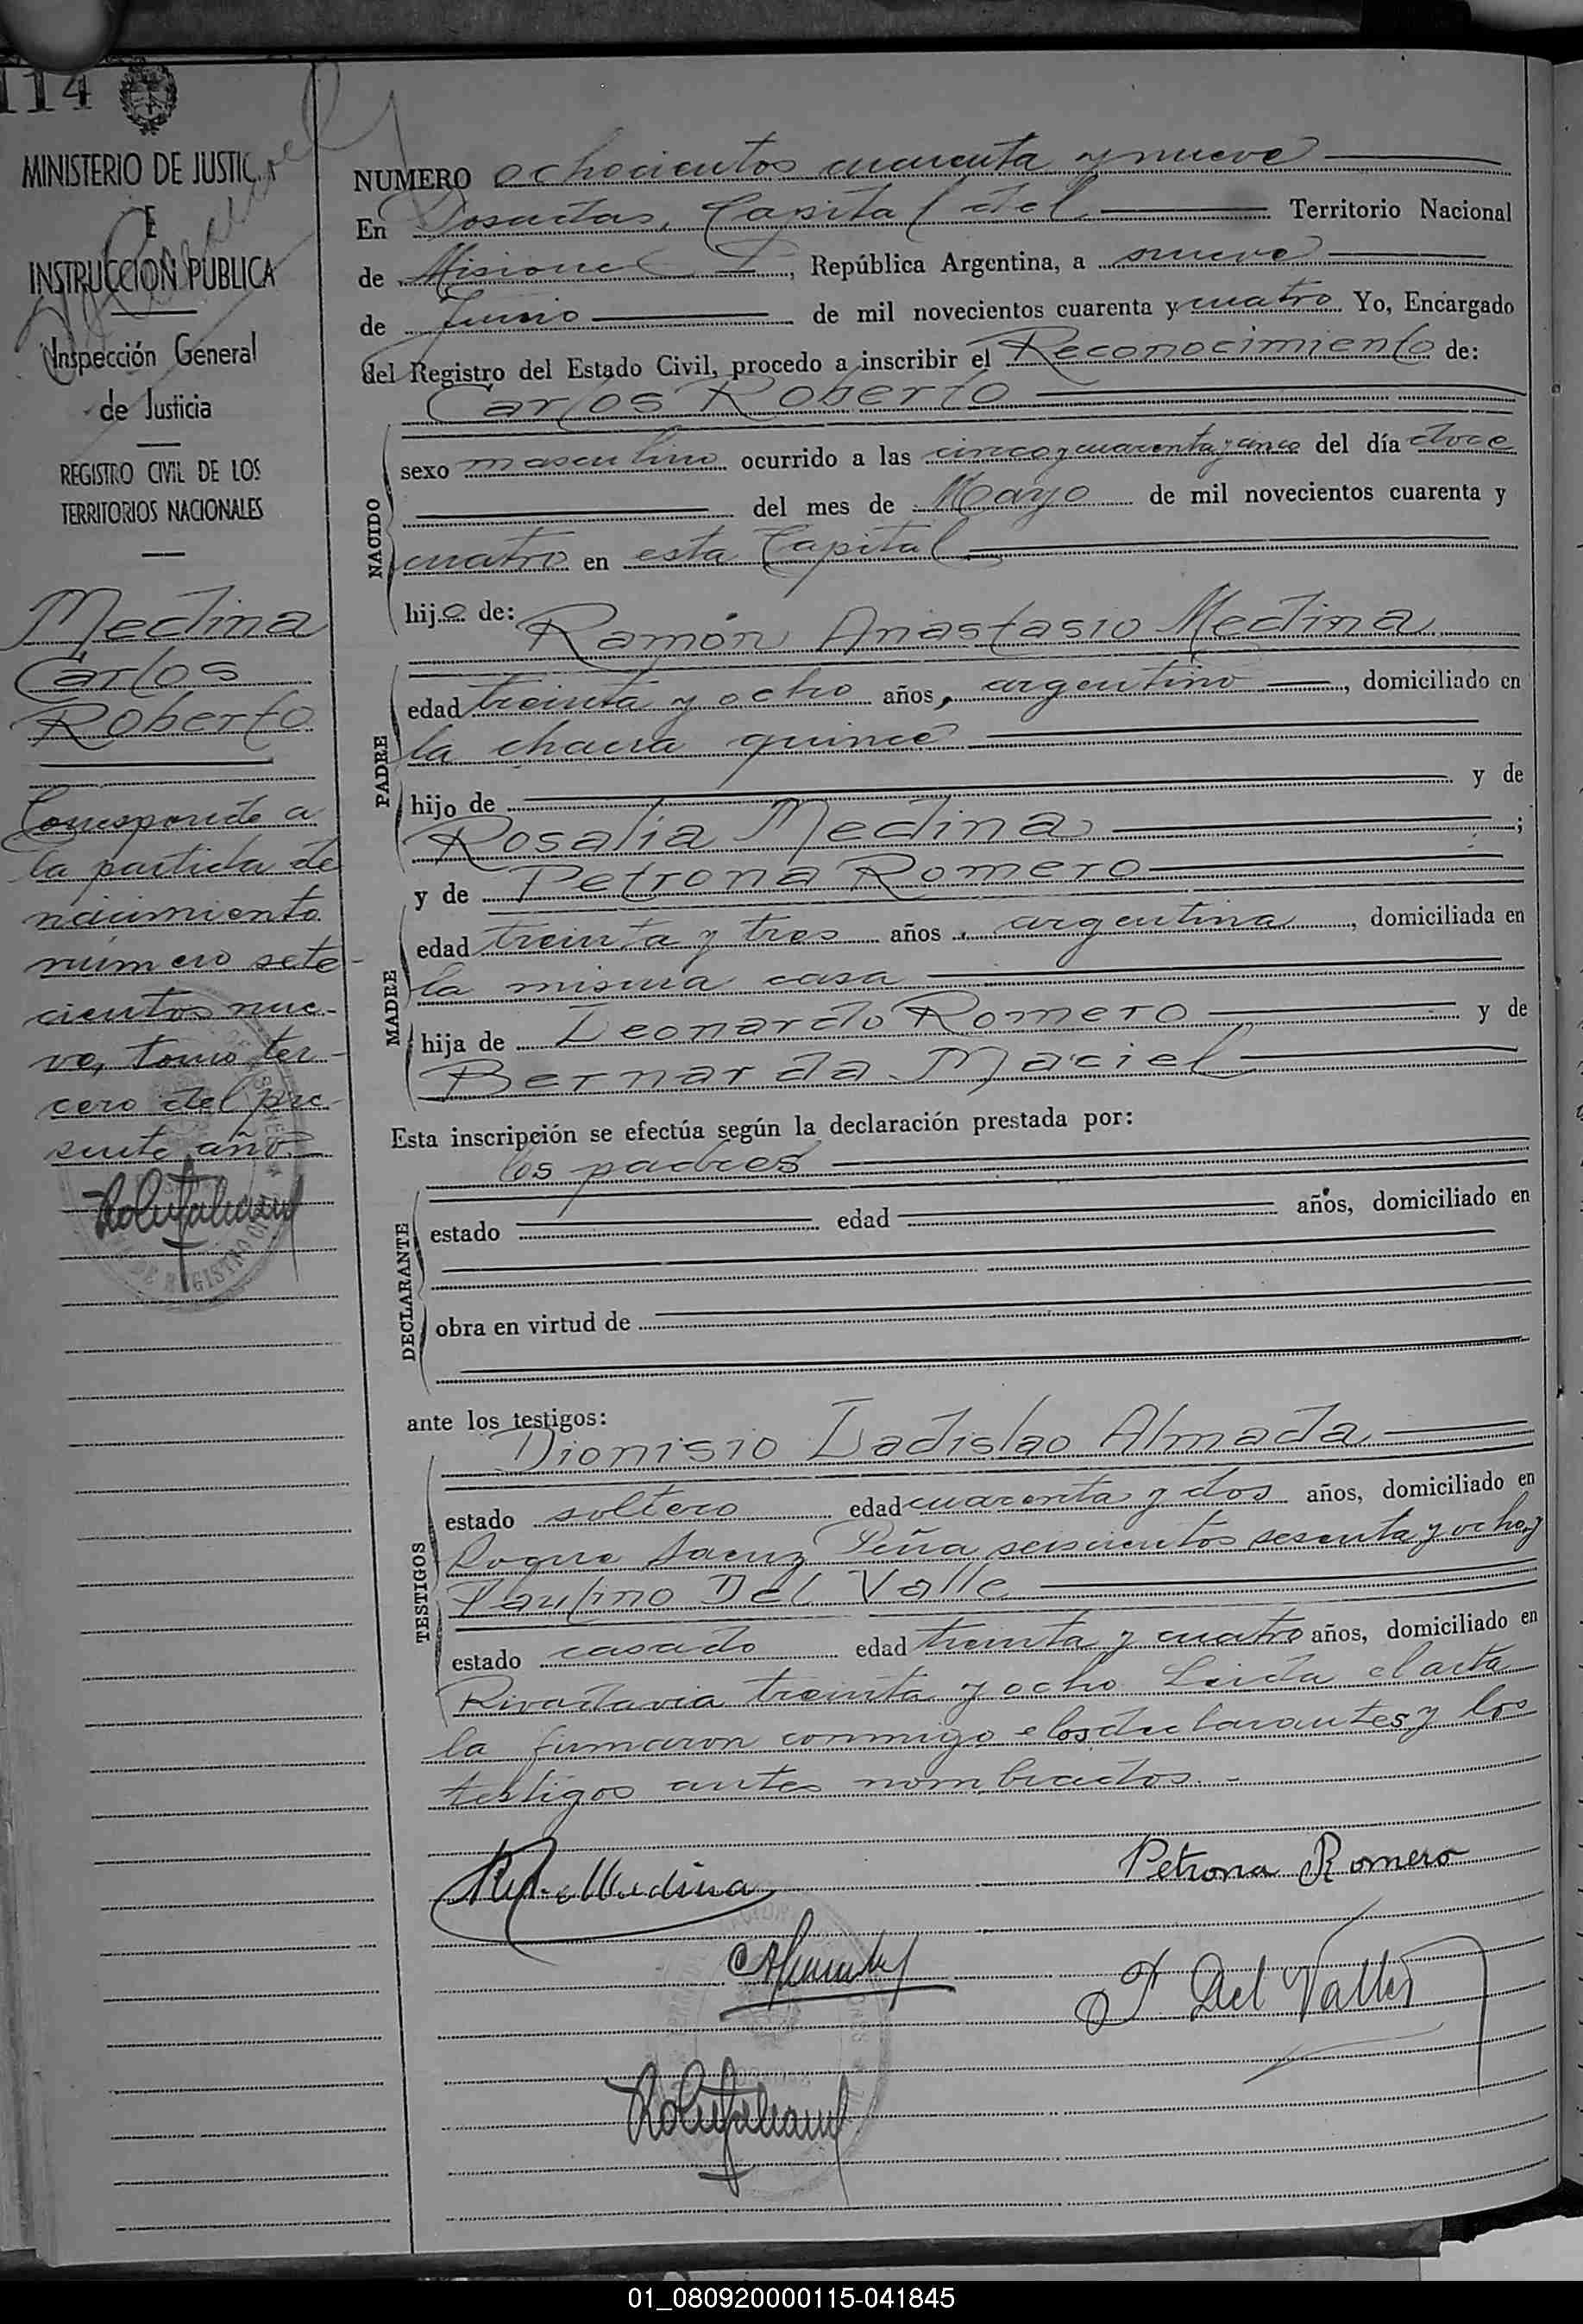 114
MINISTERIO DE JUSTICIA
E
INSTRUCCION PUBLICA
Inspección General
de Justicia
REGISTRO CIVIL DE LOS
TERRITORIOS NACIONALES
Medina
Carlos
Roberto
Corresponde a
la partida de
nacimiento
número sete-
cientos nue-
ve, tomo ter-
cero del pre-
sente año.-
NUMERO ochocientos cuarenta y nueve
En Posadas, Capital del Territorio Nacional
de Misiones, República Argentina, a nueve
de Junio de mil novecientos cuarenta y cuatro Yo, Encargado
del Registro del Estado Civil, procedo a inscribir el Reconocimiento de:
Carlos Roberto
NACIDO
sexo masculino ocurrido a las cinco y cuarenta y cinco del día doce
del mes de Mayo de mil novecientos cuarenta y
cuatro en esta Capital
hijo de:
Ramón Anastasio Medina
PADRE
edad treinta y ocho años, argentino, domiciliado en
la chacra quince
hijo de y de
Rosalia Medina;
y de Petrona Romero
MADRE
edad treinta y tres años, argentina, domiciliada en
la misma casa
hija de Leonardo Romero y de
Bernarda Maciel
Esta inscripción se efectúa según la declaración prestada por:
los padres
DECLARANTE
estado edad años, domiciliado en
obra en virtud de
ante los testigos:
Dionisio Ladislao Almada
TESTIGOS
estado soltero edad cuarenta y dos años, domiciliado en
Roque Saenz Peña seiscientos sesenta y ocho y
Paulino Del Valle
estado casado edad treinta y cuatro años, domiciliado en
Rivadavia treinta y ocho Leida el acta
la firmaron conmigo los declarantes y los
testigos antes nombrados.-
Medina
Petrona Romero
P. Del Valle
01_080920000115-041845